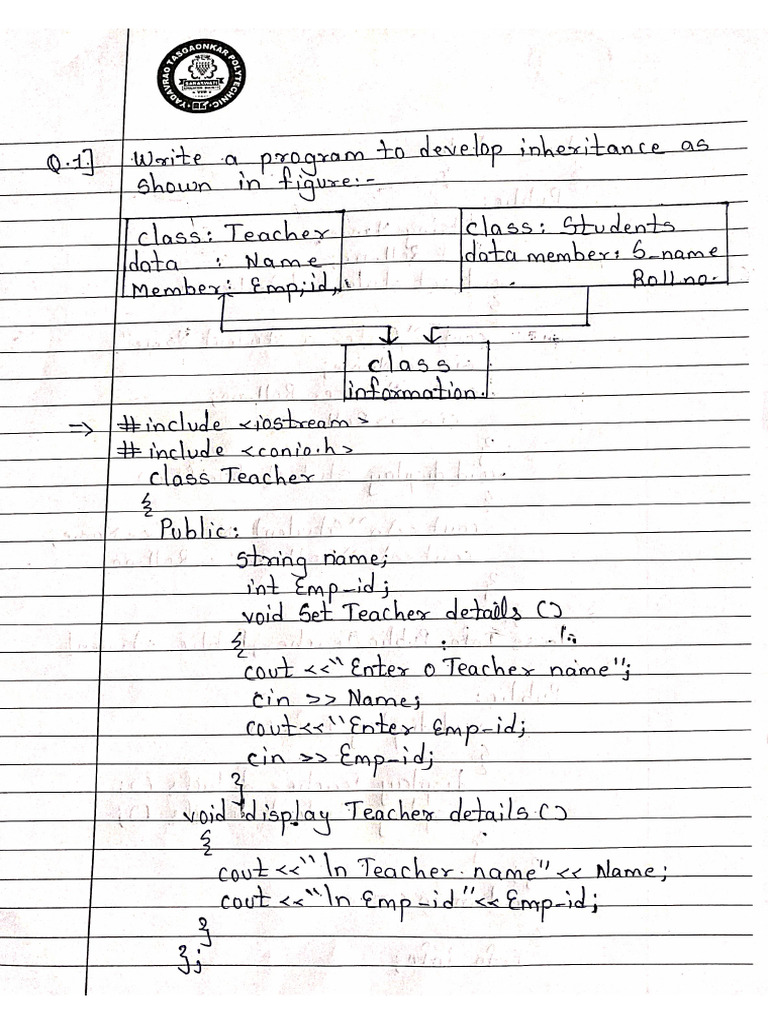 YADAVRAO TASGAONKAR POLYTECHNIC
Q.1] Write a program to develop inheritance as
shown in figure:-
class: Teacher
data : Name
Member: Emp;id,
class: Students
data member: S_name
Roll no.
class
information.
→ #include <iostream>
#include <conio.h>
class Teacher
{
Public:
String name;
int Emp-id;
void Set Teacher details ()
{
cout <<"Enter o Teacher name";
cin >> Name;
cout<<"Enter Emp-id;
cin >> Emp-id;
}
void display Teacher details ()
{
cout <<"ln Teacher name" << Name;
cout <<"ln Emp-id"<< Emp-id;
}
};